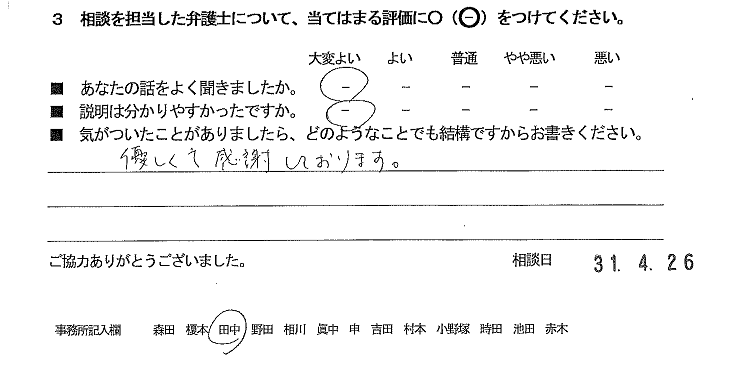 3 相談を担当した弁護士について、当てはまる評価に○（㊀）をつけてください。
大変よい よい 普通 やや悪い 悪い
■ あなたの話をよく聞きましたか。 － － － － －
■ 説明は分かりやすかったですか。 － － － － －
■ 気がついたことがありましたら、どのようなことでも結構ですからお書きください。
優しくて感謝しております。
ご協力ありがとうございました。 相談日 31. 4. 26
事務所記入欄 森田 榎本 田中 野田 相川 眞中 申 吉田 村本 小野塚 時田 池田 赤木